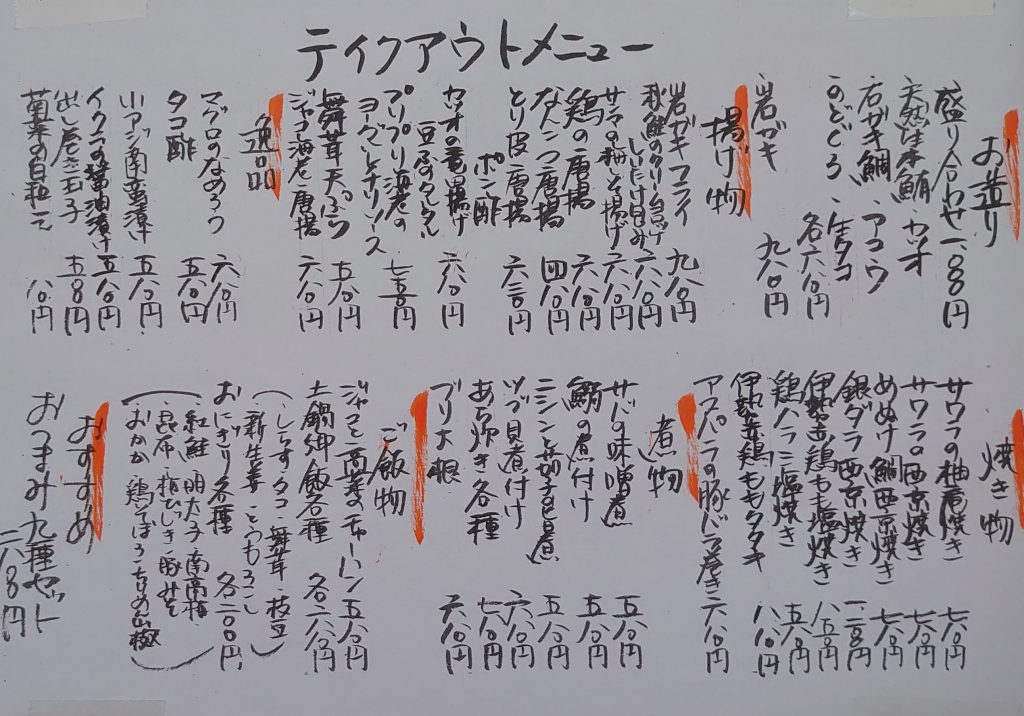 テイクアウトメニュー
お造り
盛り合わせ 一八〇〇円
天然生本鮪 ・カツオ
・石ガキ鯛 ・アコウ
・のどぐろ ・生タコ
各六八〇円
・岩ガキ 九八〇円
揚げ物
岩ガキフライ 九八〇円
秋鮭のクリームコロッケ
しいたけ包み 六八〇円
サワラの梅しそ揚げ 六八〇円
鶏の唐揚 六八〇円
なんこつ唐揚 四八〇円
とり皮唐揚
ポン酢 六三〇円
カツオの竜田揚げ
豆腐のタルタル 六八〇円
プリプリ海老の
ヨーグルトチリソース 七八〇円
舞茸天ぷら 五八〇円
ジャコ海老唐揚 六八〇円
逸品
マグロのなめろう 六八〇円
タコ酢 五八〇円
小アジ南蛮漬け 五八〇円
イクラの醤油漬け 五八〇円
出し巻き玉子 五八〇円
菊菜の白和え 八〇円
焼き物
サワラの柚香焼き 七八〇円
サワラの西京焼き 七八〇円
めぬけ鯛西京焼き 七八〇円
銀ダラ西京焼き
伊勢赤鶏もも塩焼き 八五〇円
鶏ハラミ塩焼き 五八〇円
伊勢赤鶏ももタタキ 八八〇円
アスパラの豚バラ巻き 六八〇円
煮物
サバの味噌煮 五八〇円
鯛の煮付け 五八〇円
ニシンと茄子の煮 五八〇円
ツブ貝煮付け 六八〇円
あら炊き各種 七八〇円
ブリ大根 六八〇円
ご飯物
ジャコと高菜のチャーハン 五八〇円
土鍋御飯各種 各六八〇円
(しらす タコ 舞茸 枝豆
新生姜 とうもろこし)
おにぎり各種 各二〇〇円
(紅鮭 明太子 南高梅
昆布 梅ひじき 豚みそ
おかか 鶏そぼろ ちりめん山椒)
おすすめ
おつまみ九種セット
二八〇〇円